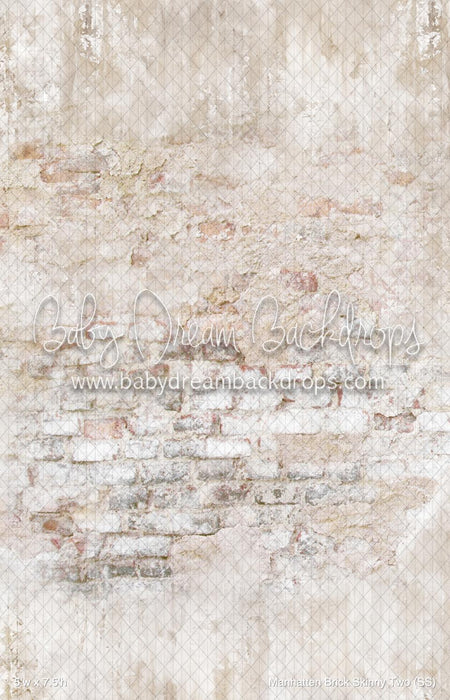 Baby Dream Backdrops
www.babydreambackdrops.com
5'w x 7.5'h Manhatten Brick Skinny Two (SS)